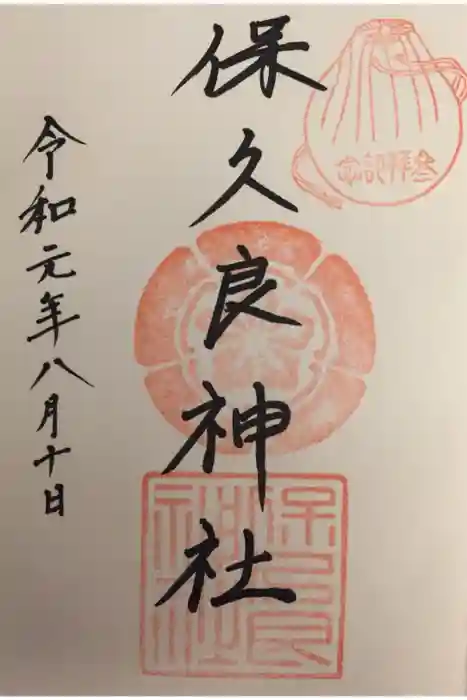 参拝記念
保久良神社
令和元年八月十日
保久良
神社